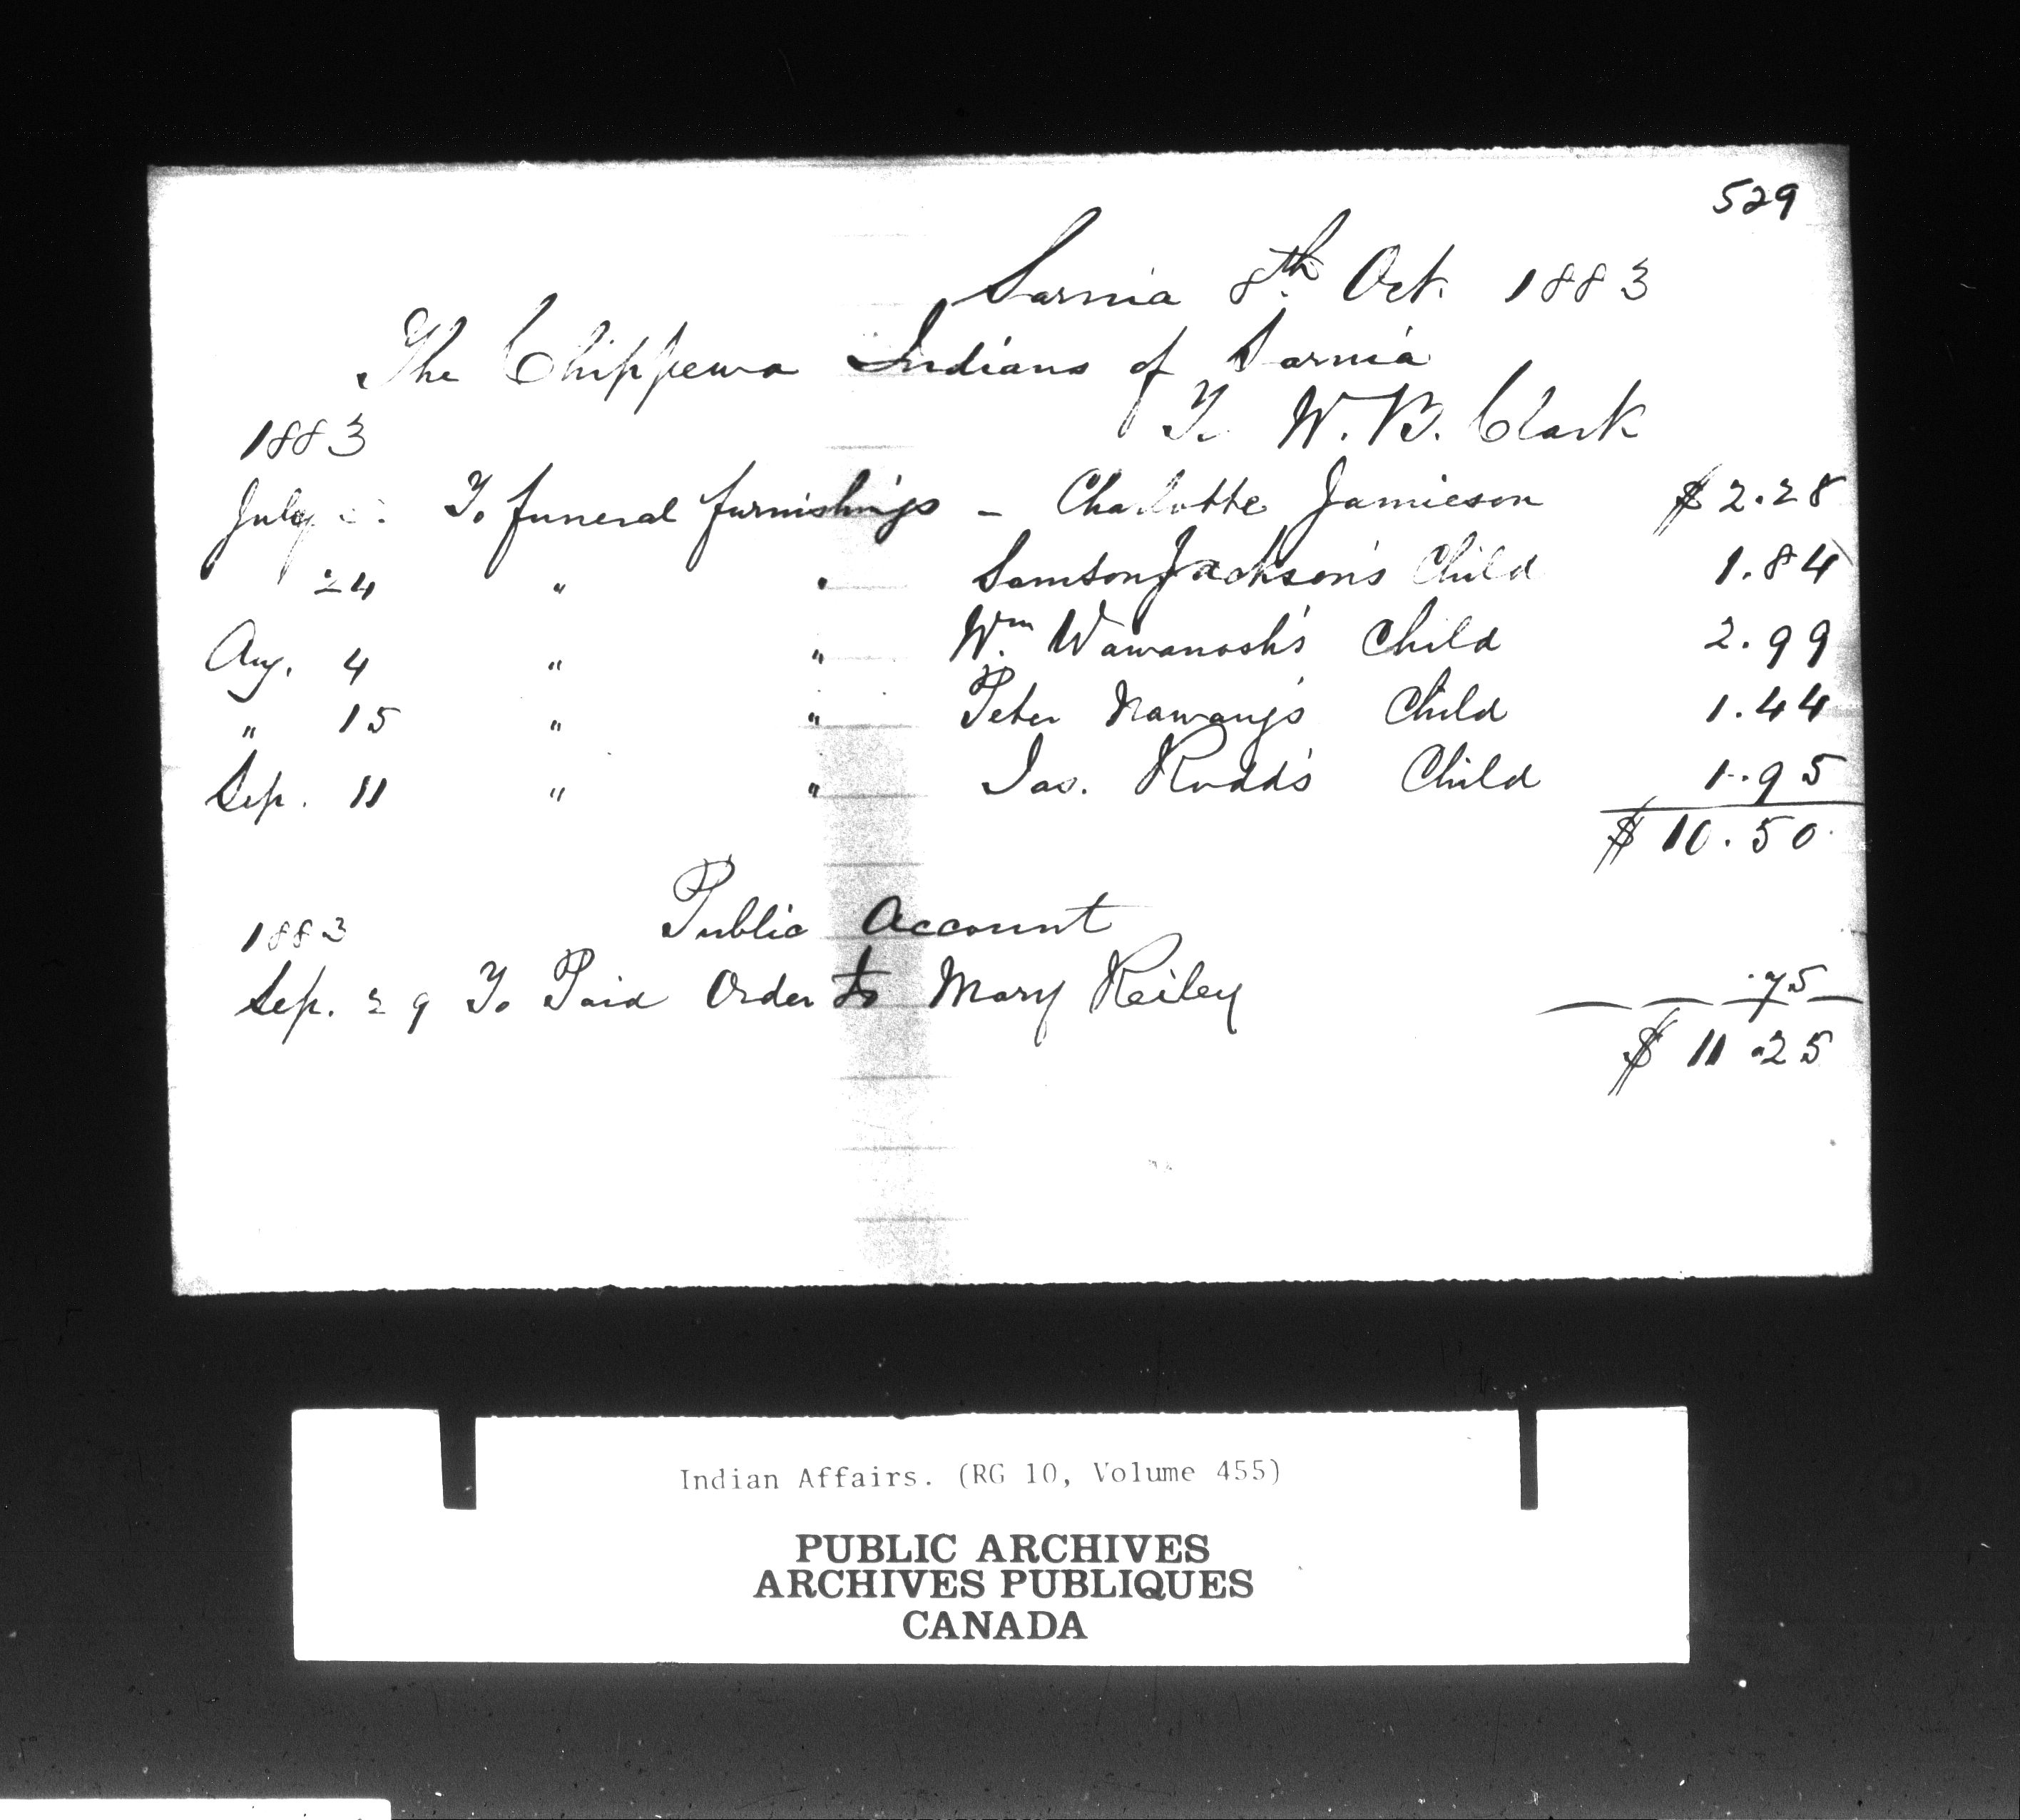 529
Sarnia 8th Oct. 1883
The Chippewa Indians of Sarnia
To W. B. Clark
1883
July To funeral furnishings - Charlotte Jamieson $ 2.28
24 " " Samson Jackson's Child 1.84
Aug. 4 " " Wm Wawanosh's Child 2.99
" 15 " " Peter Nawang's Child 1.44
Sep. 11 " " Jas. Rodd's Child 1.95
$ 10.50
Public Account
1883
Sep. 29 To Paid Order to Mary Reiley .75
$ 11.25
Indian Affairs. (RG 10, Volume 455)
PUBLIC ARCHIVES
ARCHIVES PUBLIQUES
CANADA